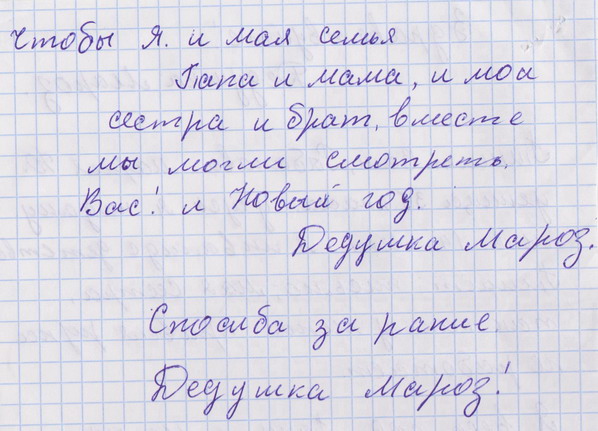 Чтобы Я. и мая семья
Папа и мама, и мои
сестра и брат, вместе
мы могли смотреть.
Вас! и Новый год.
Дедушка Мароз.
Спосиба за рание
Дедушка Мароз!